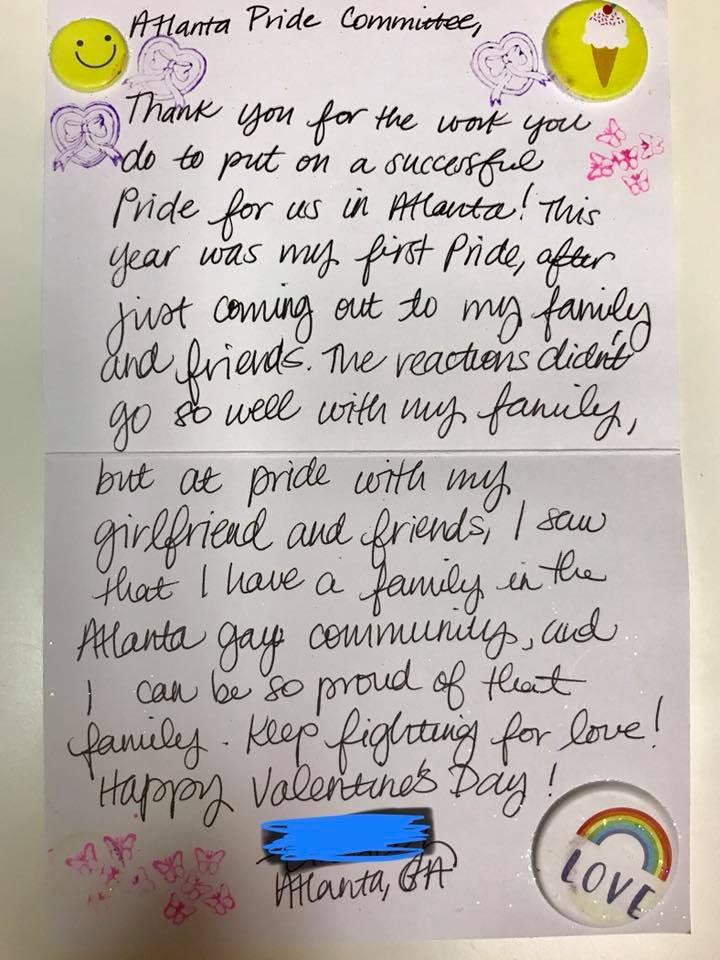 Atlanta Pride Committee,
Thank you for the work you
do to put on a successful
Pride for us in Atlanta! This
year was my first Pride, after
just coming out to my family
and friends. The reactions didn't
go so well with my family,
but at pride with my
girlfriend and friends, I saw
that I have a family in the
Atlanta gay community, and
I can be so proud of that
family. Keep fighting for love!
Happy Valentine's Day!
Atlanta, GA
LOVE